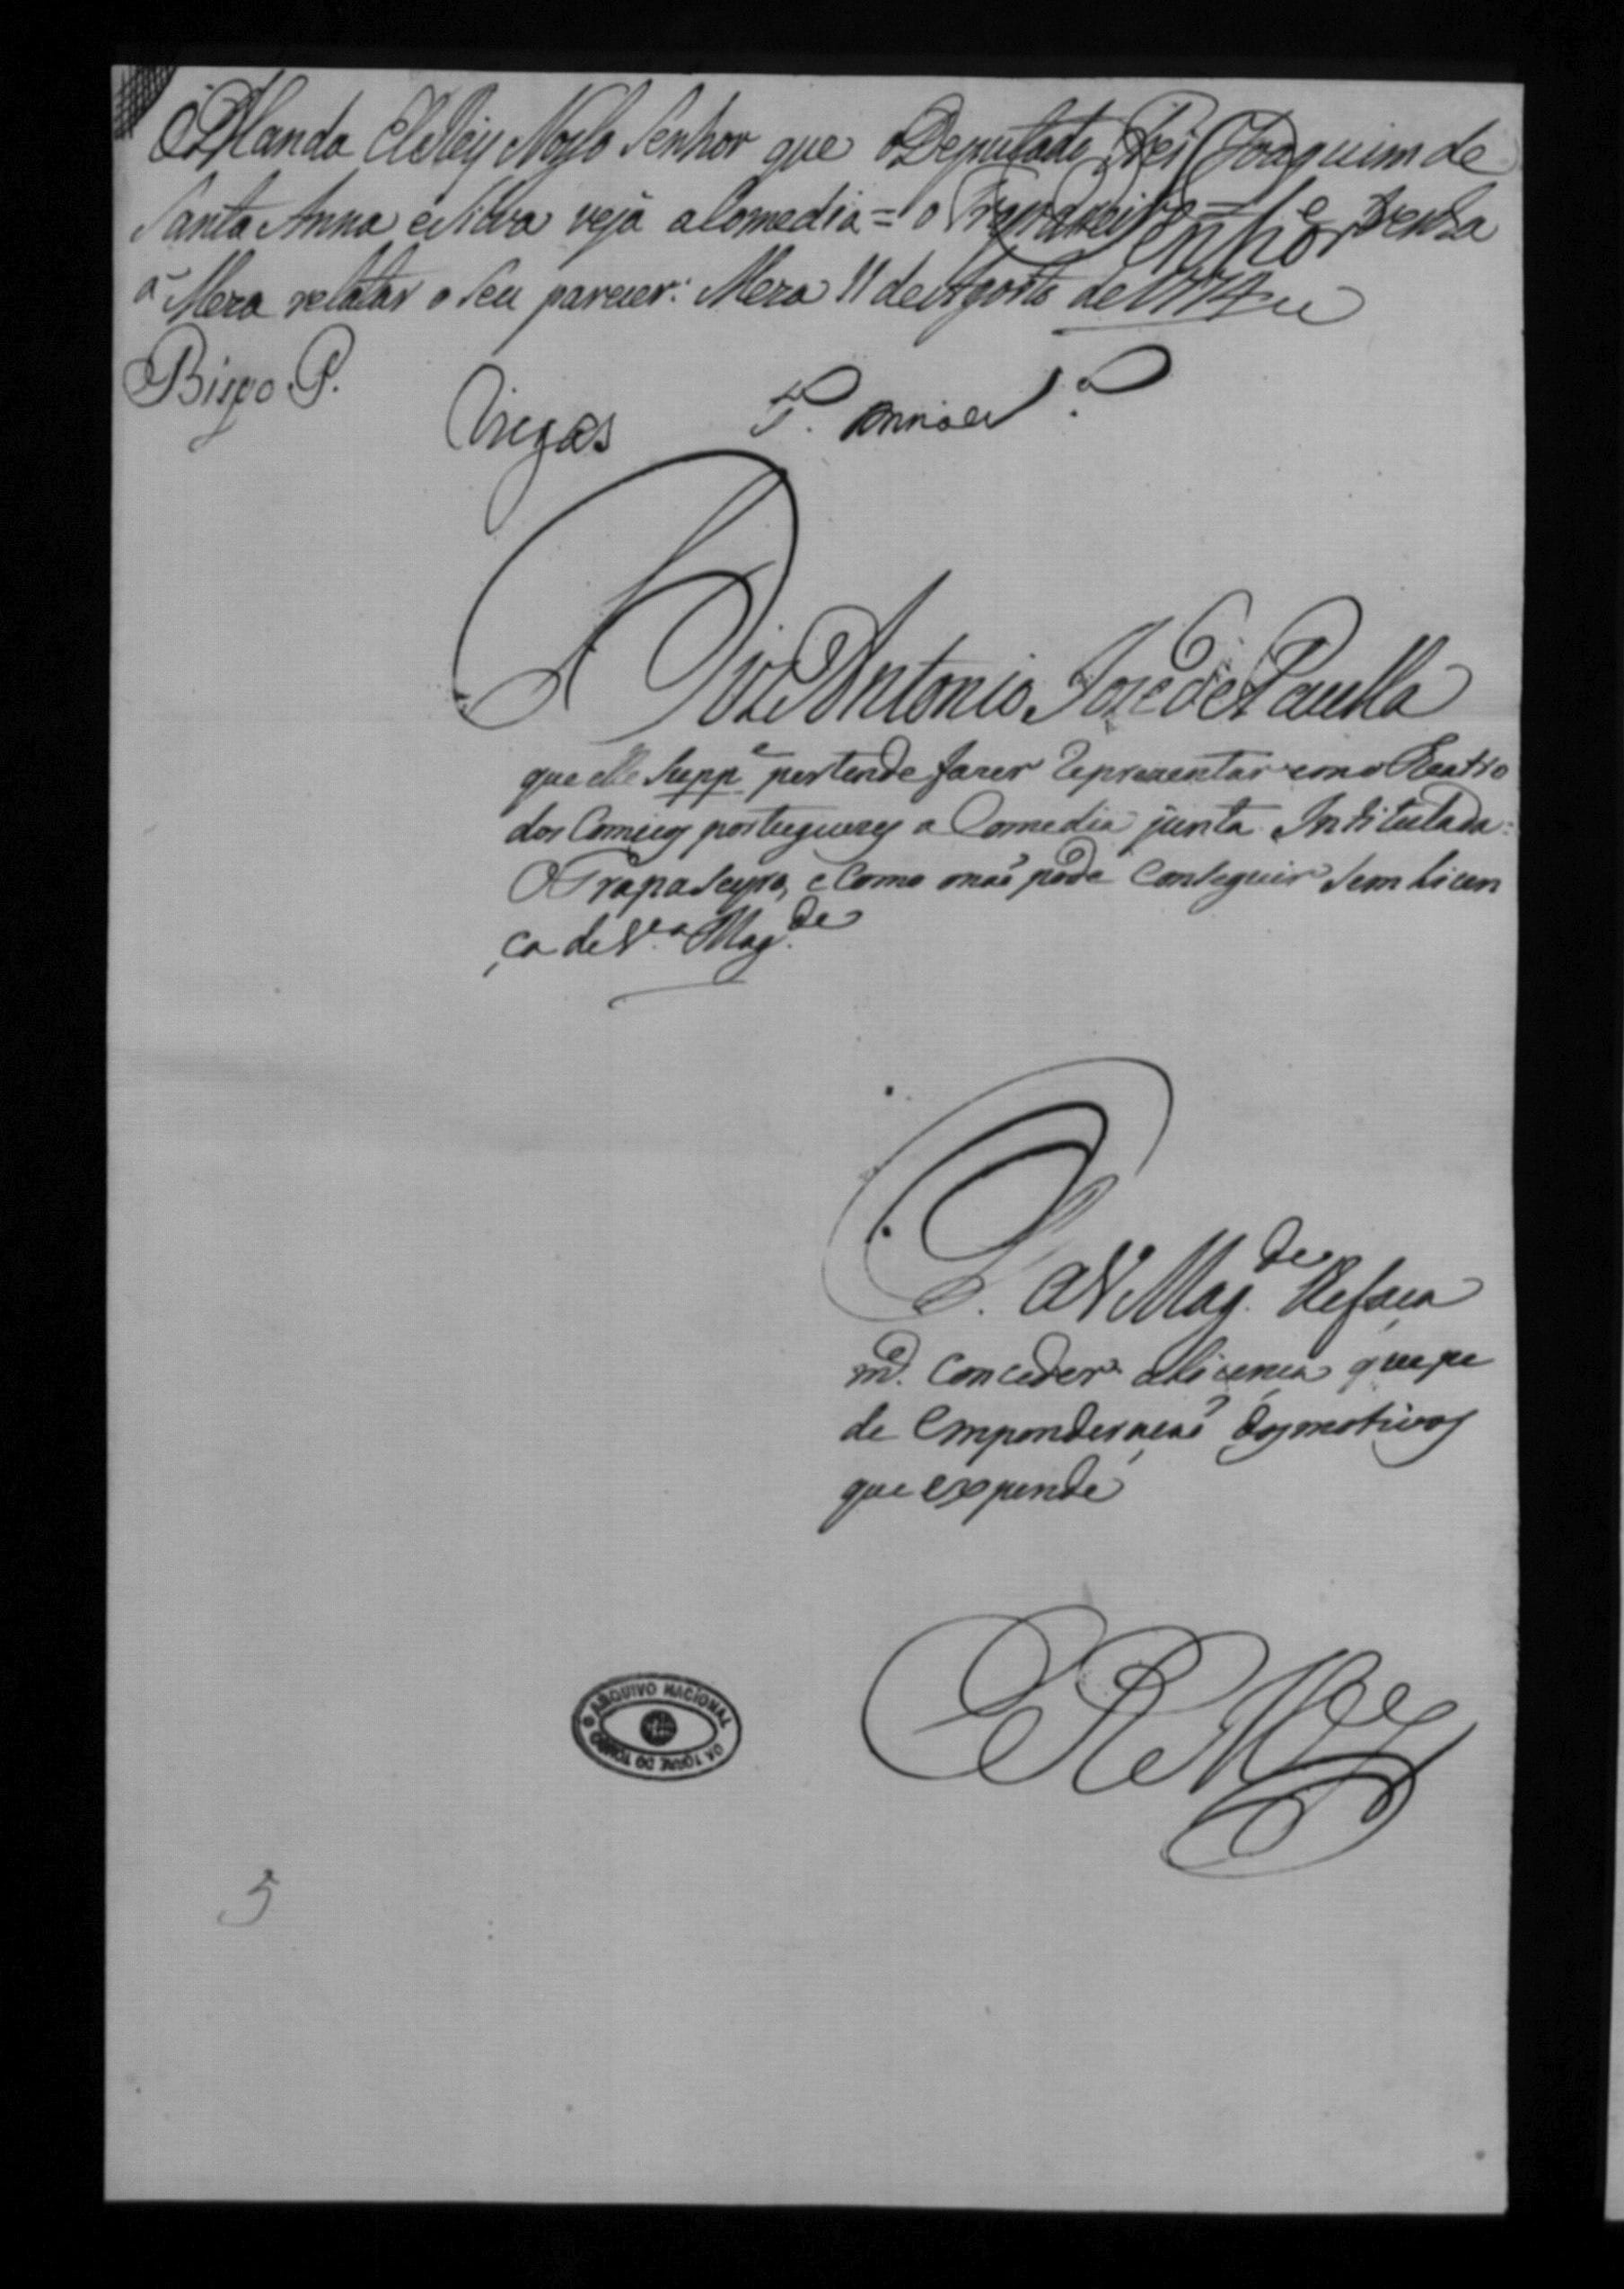 Manda ElRey Nosso Senhor que o Deputado Frei Joaquim de
Santa Anna e Silva veja a Comedia = o Trapaseiro = e venha
á Meza relatar o seu parecer: Meza 11 de Agosto de 1774
Senhor
Bispo P.
Viegas
Diz Antonio Joze de Paulla
que elle Supp.e pertende fazer Reprezentar em o Theatro
dos Comicos portuguezes a Comedia junta Intitulada:
O Trapaseyro, e como o naõ pode Conseguir sem licen
ça de V.a Mag.de
P. a V Mag.de lhe faça
m.ce Conceder a licença que pe
de Emponderaçaõ dos motivos
que expende
E R M.ce
ARQUIVO NACIONAL DA TORRE DO TOMBO
5